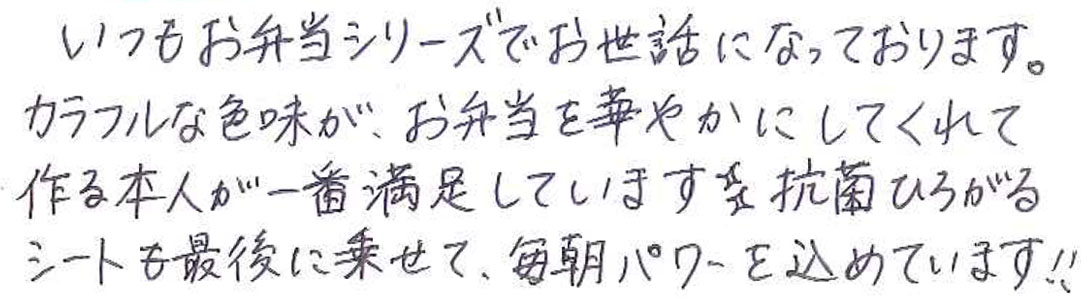 いつもお弁当シリーズでお世話になっております。
カラフルな色味が、お弁当を華やかにしてくれて
作る本人が一番満足しています☆抗菌ひろがる
シートも最後に乗せて、毎朝パワーを込めています!!